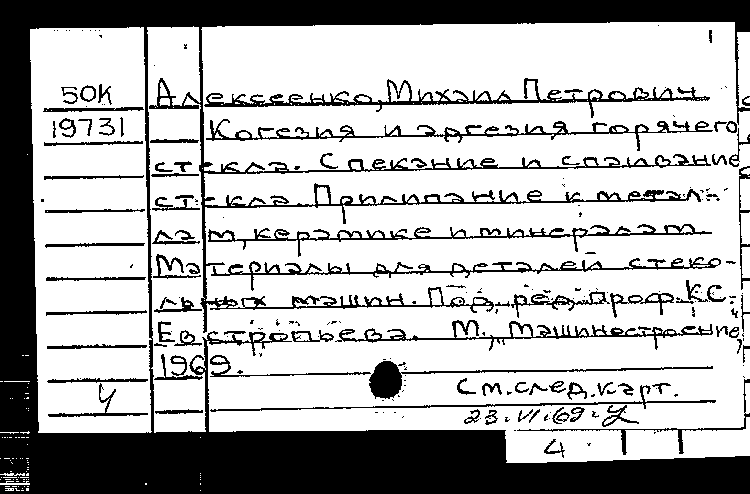 50К Алексеенко, Михаил Петрович
19731 Когезия и адгезия горячего
стекла. Спекание и спаивание
стекла. Прилипание к метал-
лам, керамике и минералам.
Материалы для деталей стеко-
льных машин. Под ред. проф. К.С.
Евстропьева. М., "Машиностроение",
1969.
См. след. карт.
23.VI.69.
4